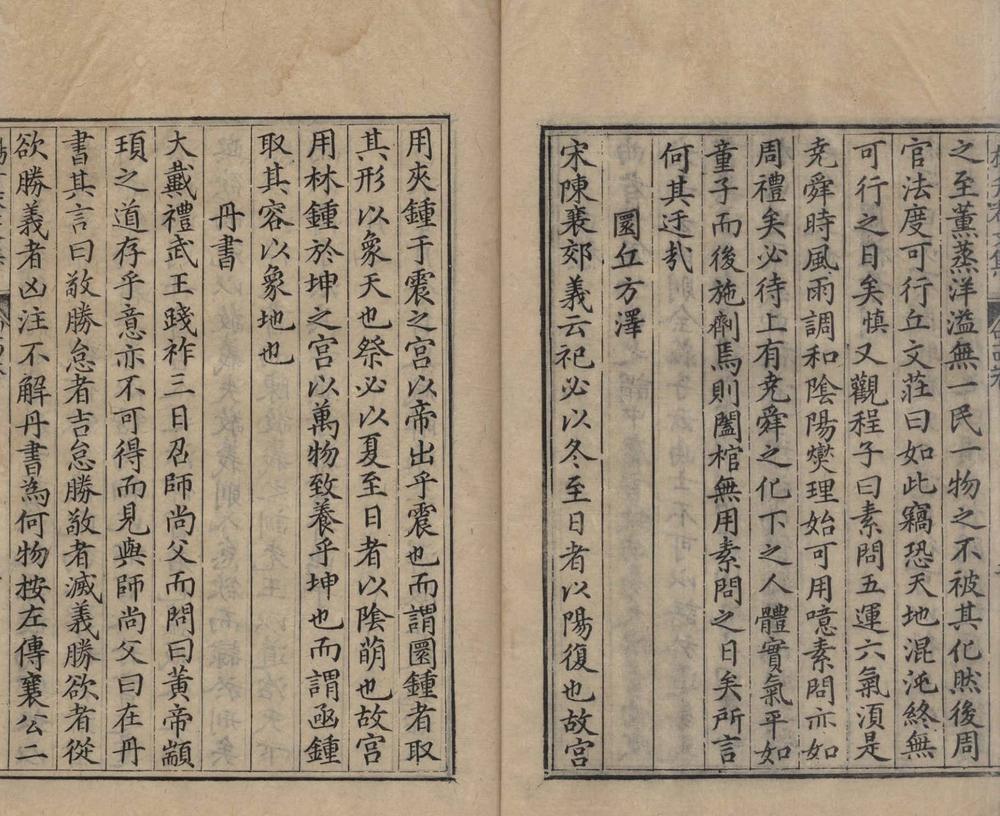 之至薰蒸洋溢無一民一物之不被其化然後周
官法度可行丘文莊曰如此竊恐天地混沌終無
可行之日矣慎又觀程子曰素問五運六氣湏是
尭舜時風雨調和陰陽爕理始可用噫素問亦如
周禮矣必待上有尭舜之化下之人體實氣平如
童子而後施劑焉則闔棺無用素問之日矣所言
何其迂㢤
圜丘方澤
宋陳襄郊義云祀必以冬至日者以陽復也故宮
用夾鍾于震之宮以帝出乎震也而謂圜鍾者取
其形以象天也祭必以夏至日者以陰萌也故宮
用林鍾於坤之宮以萬物致養乎坤也而謂函鍾
取其容以象地也
丹書
大戴禮武王踐祚三日召師尚父而問曰黃帝顓
頊之道存乎意亦不可得而見與師尚父曰在丹
書其言曰敬勝怠者吉怠勝敬者滅義勝欲者從
欲勝義者凶注不解丹書為何物按左傳襄公二